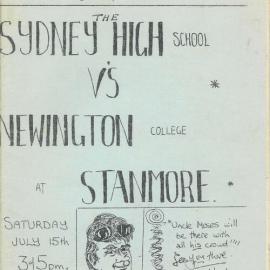 THE
SYDNEY HIGH SCHOOL
V'S *
NEWINGTON COLLEGE
AT STANMORE. *
SATURDAY
JULY 15th
3.15pm.
"Uncle Moses will
be there with
all his crowd"!!!